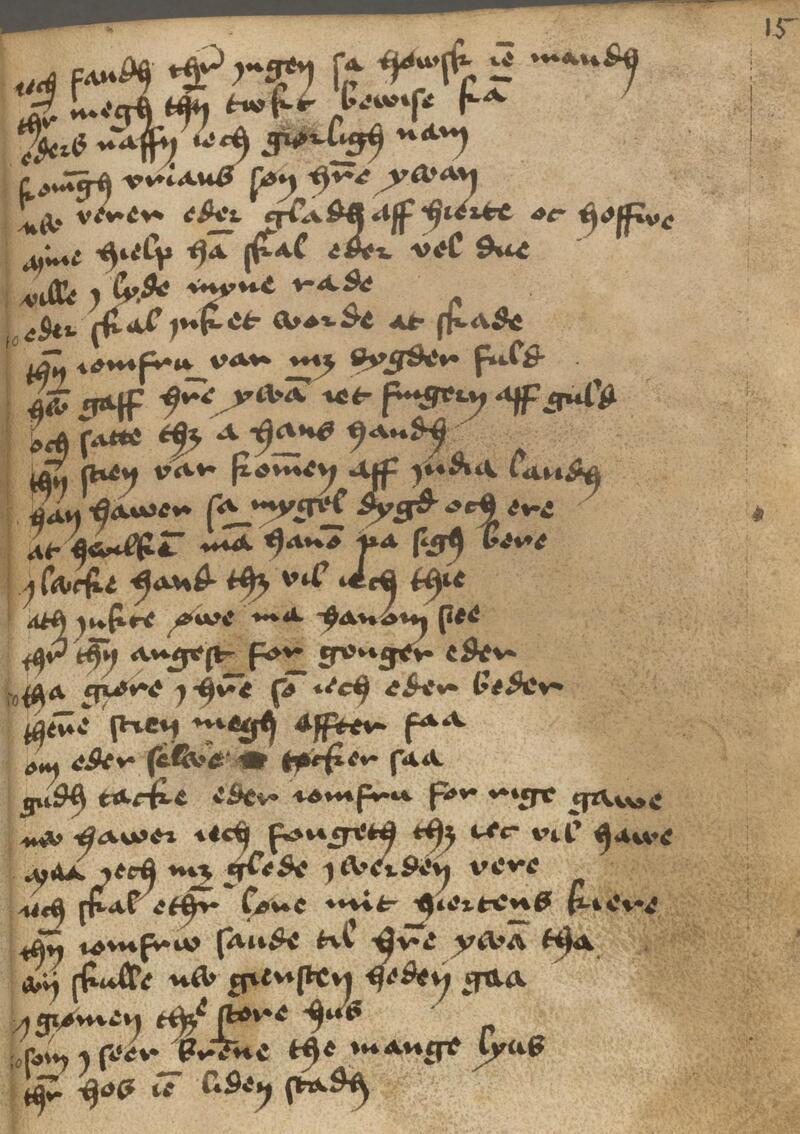 15
iech fandh thr̄ jngen sa høwsk iē mandh
thr̄ megh thn̄ twkt bewise kā
eders naffn iech giørligh nam
konīgh vrians søn hr̄e ywan
nw verer eder gladh aff hierte oc hoffwe
myne hielp hā skal eder vel due
ville j lyde myne rade
eder skal jnket worde at skade
thn̄ iomfru var mz dygder fuld
hw̄ gaff hr̄e ywā iet fingern aff guld
och satte thz a hans handh
thn̄ stien var kom̄en aff jndia landh
han hawer sa mygel dygd och ere
at hwilkē mā hanō pa sigh bere
j lucke hand thz vil iech thie
ath jnkte øwe ma hanom see
thr̄ thn̄ angest for gonger eder
tha giøre j hr̄e sō iech eder beder
then̄e stien megh affter faa
om eder selwe tøcker saa
gudh tacke eder iomfru for rige gawe
nw hawer iech fongeth thz iec vil hawe
maa jech mz glede j werden vere
iech skal ethr̄ løne mit hiertens kiere
thn̄ iomfrw saude til hr̄e ywā tha
wii skulle nw giensten heden gaa
j giømen thze store hus
som j seer bren̄e the mange lyus
thr̄ hos iē liden stadh